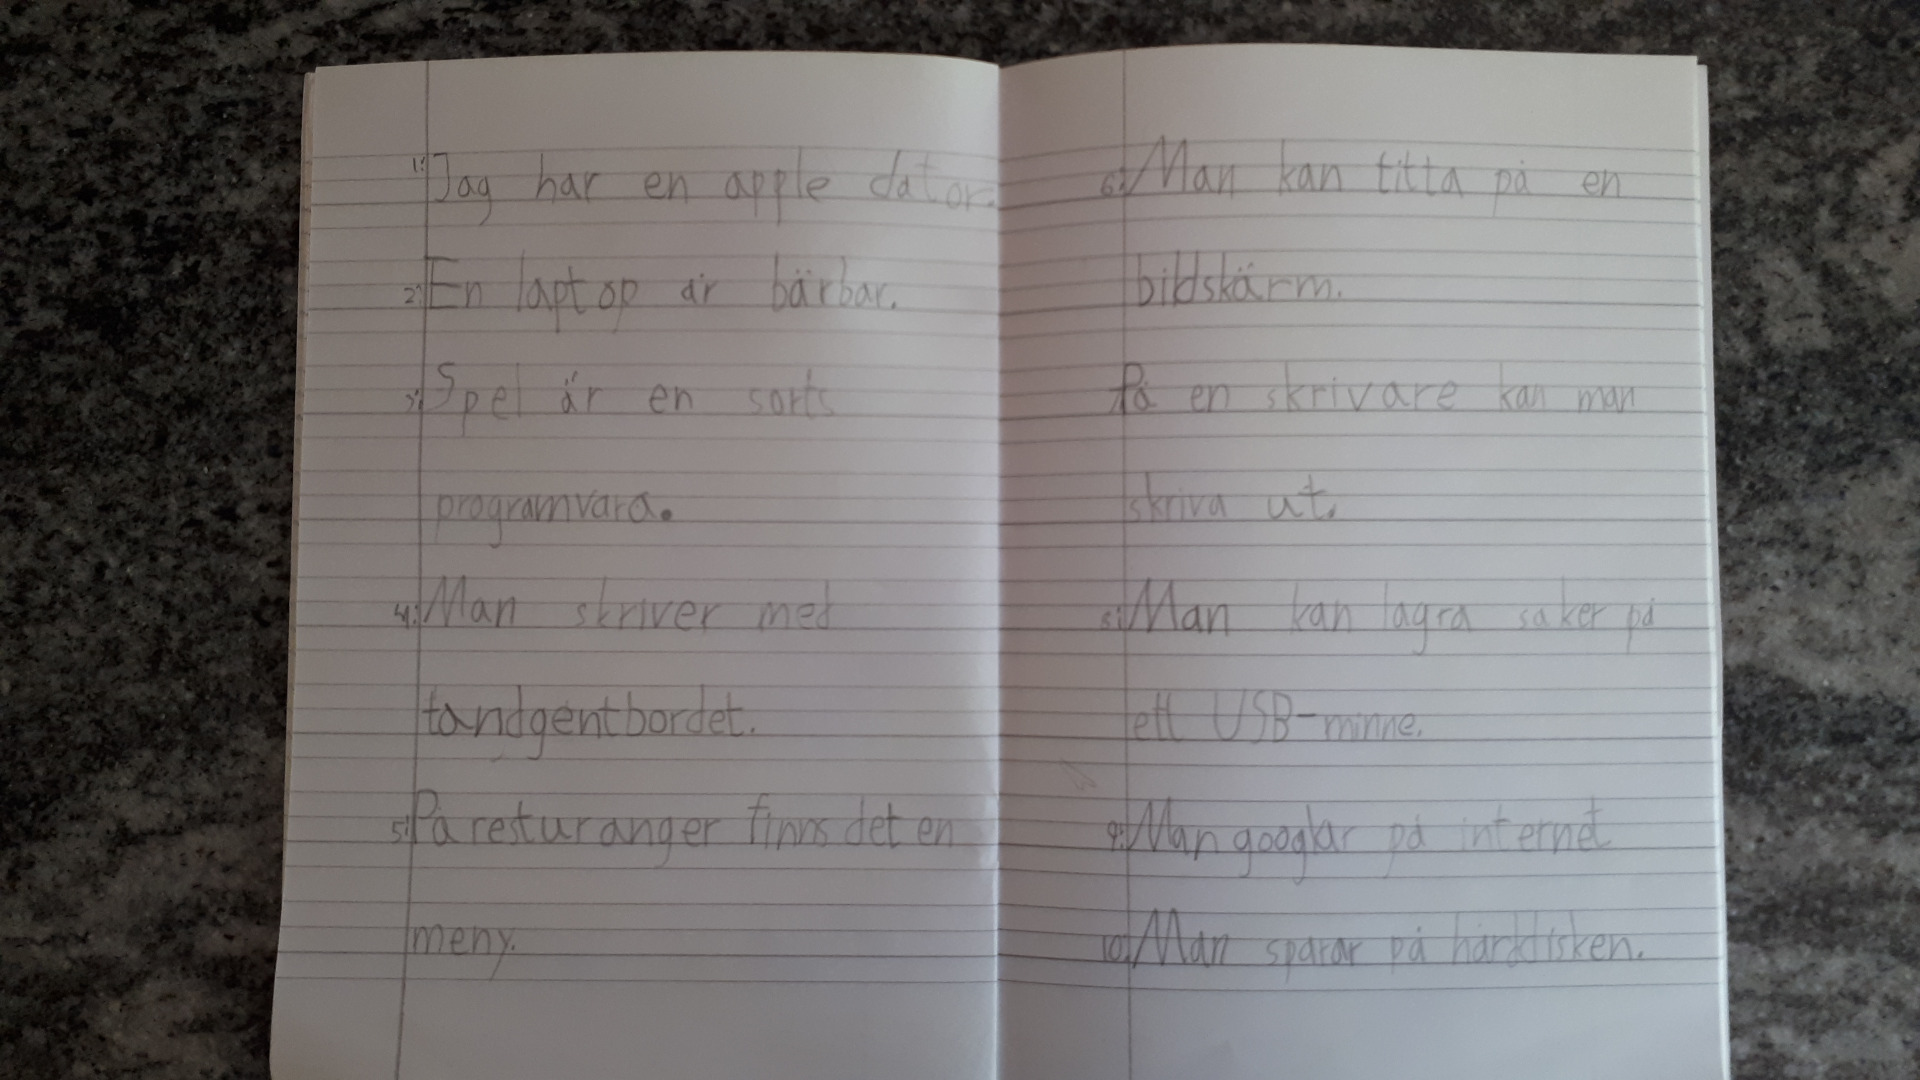 1. Jag har en apple dator.
2. En laptop är bärbar.
3. Spel är en sorts
programvara.
4. Man skriver med
tandgentbordet.
5. På resturanger finns det en
meny.
6. Man kan titta på en
bildskärm.
På en skrivare kan man
skriva ut.
8. Man kan lagra saker på
ett USB-minne.
9. Man googlar på internet
10. Man sparar på hårddisken.